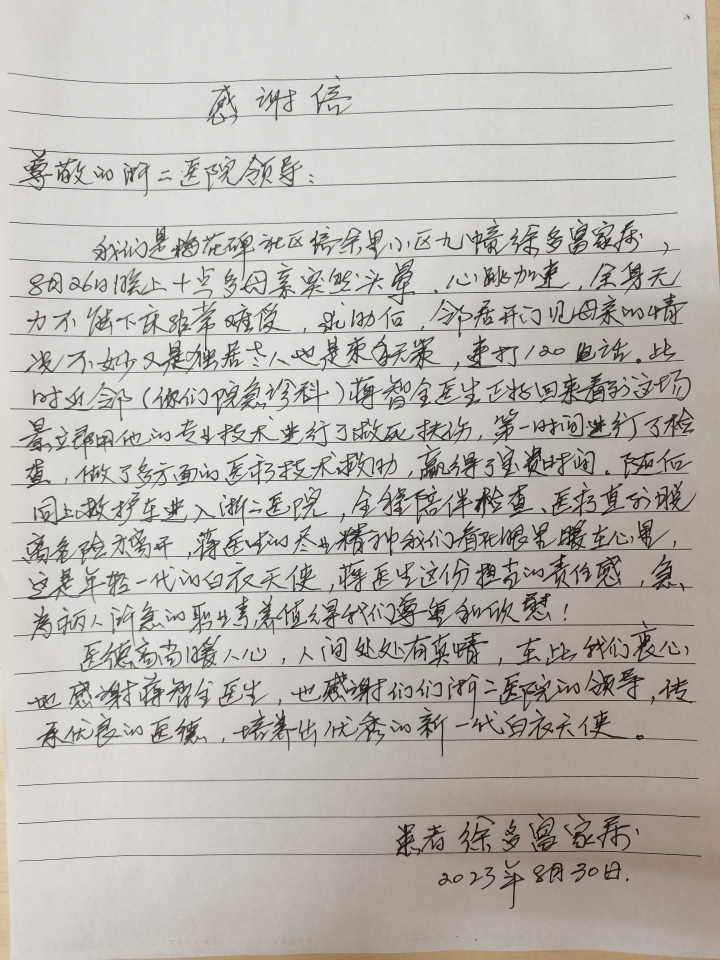 感谢信
尊敬的浙二医院领导：
我们是梅花碑社区信余里小区九幢徐多富家属，
8月26日晚上十点多母亲突然头晕、心跳加速，全身无
力不能下床非常难受，求助后，邻居开门见母亲的情
况不妙又是独居老人也是束手无策，速打120电话。此
时近邻（你们院急诊科）蒋智全医生正好回来看到这场
景立即用他的专业技术进行了救死扶伤，第一时间进行了检
查，做了多方面的医疗技术救助，赢得了宝贵时间。随后
同上救护车进入浙二医院，全程陪伴检查、医疗直到脱
离危险才离开，蒋医生的尽业精神我们看在眼里暖在心里，
这是年轻一代的白衣天使，蒋医生这份担当的责任感，急
为病人所急的职业素养值得我们尊重和欣慰！
医德高尚暖人心，人间处处有真晴，在此我们衷心
地感谢蒋智全医生，也感谢们们浙二医院的领导，传
承优良的医德，培养出优秀的新一代白衣天使。
患者徐多富家属
2023年8月30日.